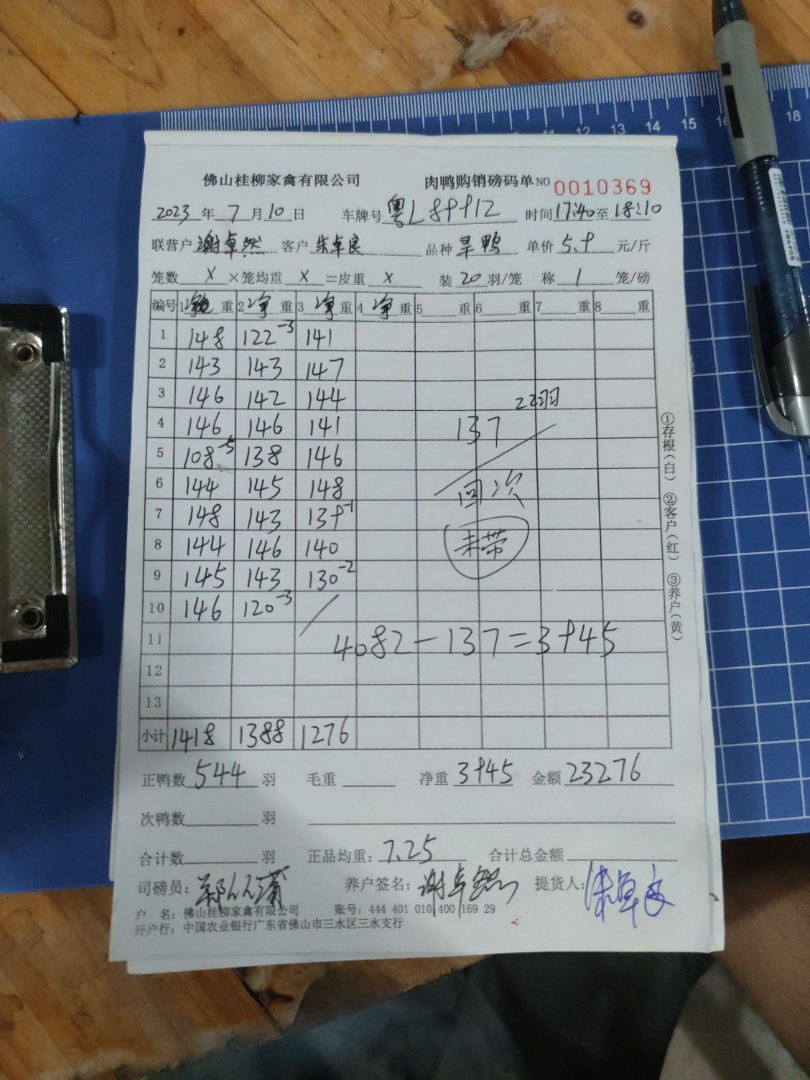 佛山桂柳家禽有限公司 肉鸭购销磅码单 NO 0010369
2023年7月10日 车牌号 粤L89912 时间17:40至18:10
联营户 谢卓然 客户 朱卓良 品种 旱鸭 单价 5.9 元/斤
笼数 X ×笼均重 X =皮重 X 装 20 羽/笼 称 1 笼/磅
编号 1 净 重 2 净 重 3 净 重 4 净 重 5 重 6 重 7 重 8 重
1 148 122-3 141
2 143 143 147
3 146 142 144 22羽
4 146 146 141 137
5 108-5 138 146
6 144 145 148 回次
7 148 143 139-1
8 144 146 140 未带
9 145 143 130-2
10 146 120-3
11 4082-137=3945
12
13
小计 1418 1388 1276
正鸭数 544 羽 毛重 净重 3945 金额 23276
次鸭数 羽
合计数 羽 正品均重: 7.25 合计总金额
司磅员: 养户签名: 谢卓然 提货人: 朱卓良
户 名: 佛山桂柳家禽有限公司 账号: 444 401 010 400 169 29
开户行: 中国农业银行广东省佛山市三水区三水支行
①存根(白) ②客户(红) ③养户(黄)
14 15 16 17 18